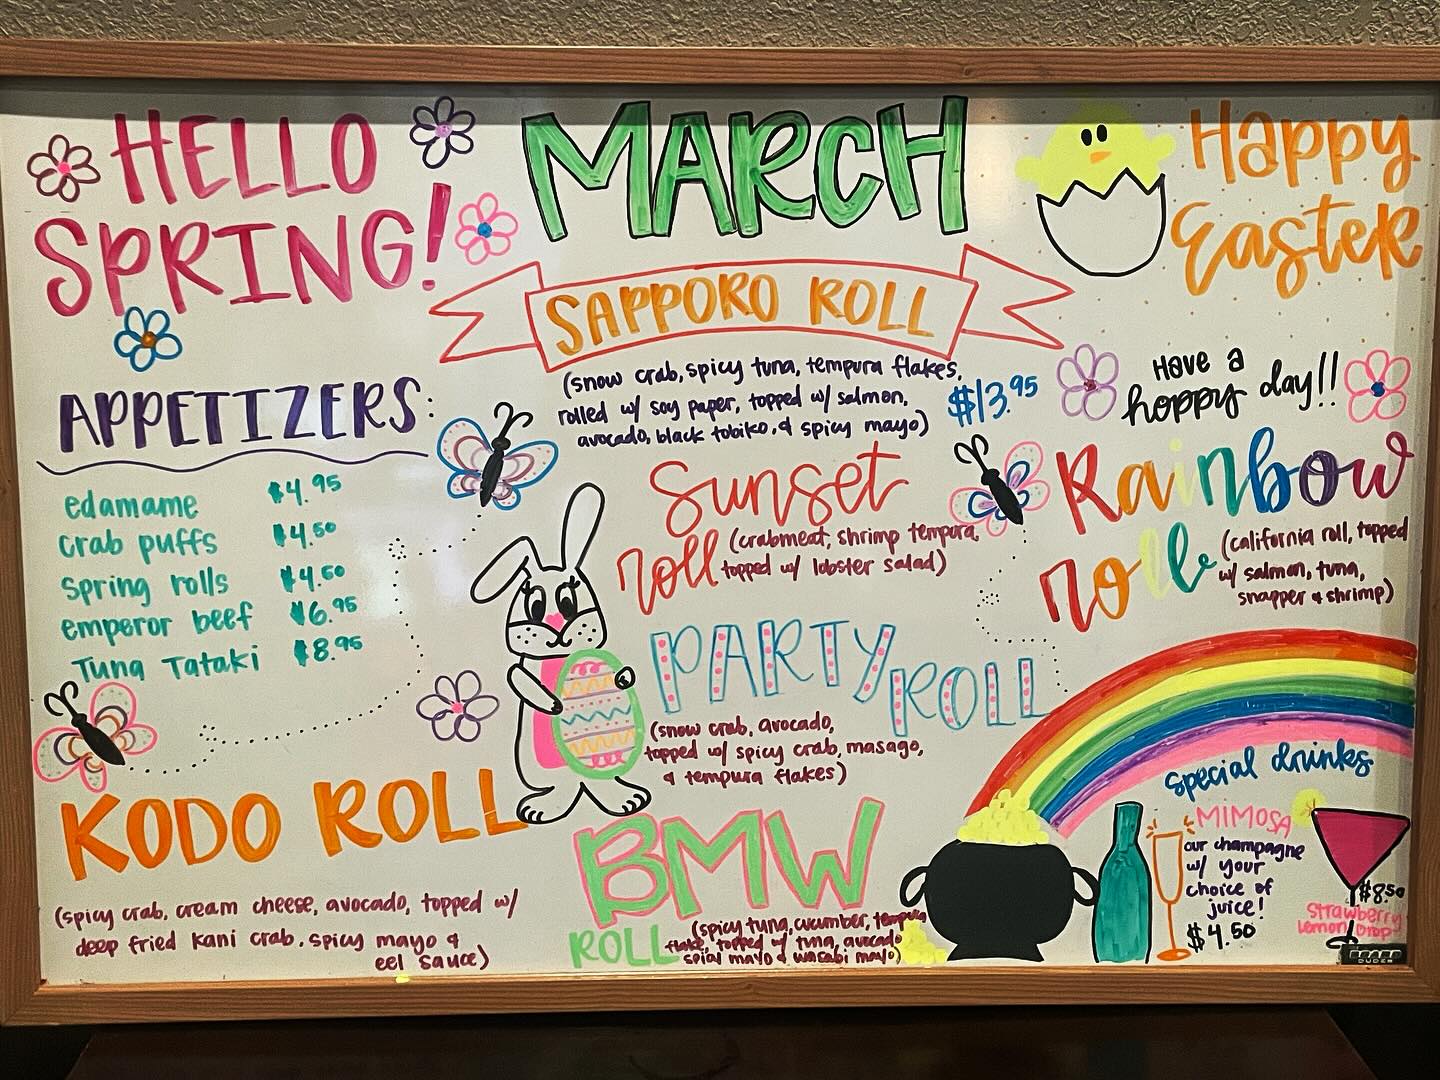 HELLO
SPRING!
MARCH
Happy
Easter
SAPPORO ROLL
(snow crab, spicy tuna, tempura flakes,
rolled w/ soy paper, topped w/ salmon,
avocado, black tobiko, & spicy mayo)
$13.95
Have a
hoppy day!!
APPETIZERS:
edamame $4.95
crab puffs $4.50
spring rolls $4.50
emperor beef $6.95
Tuna Tataki $8.95
Sunset
roll (crabmeat, shrimp tempura,
topped w/ lobster salad)
Rainbow
roll (california roll, topped
w/ salmon, tuna,
snapper & shrimp)
PARTY
ROLL
(snow crab, avocado,
topped w/ spicy crab, masago,
& tempura flakes)
KODO ROLL
(spicy crab, cream cheese, avocado, topped w/
deep fried kani crab, spicy mayo &
eel sauce)
BMW
ROLL (spicy tuna, cucumber, tempura
flake, topped w/ tuna, avocado
spial mayo & wasabi mayo)
special drinks
MIMOSA
our champagne
w/ your
choice of
juice!
$4.50
$8.50
Strawberry
Lemon Drop
BOARD
DUDES